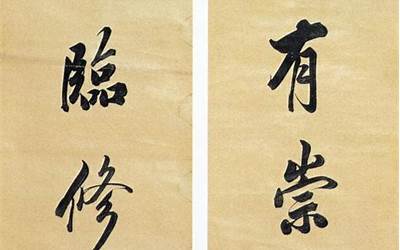 有崇
臨修